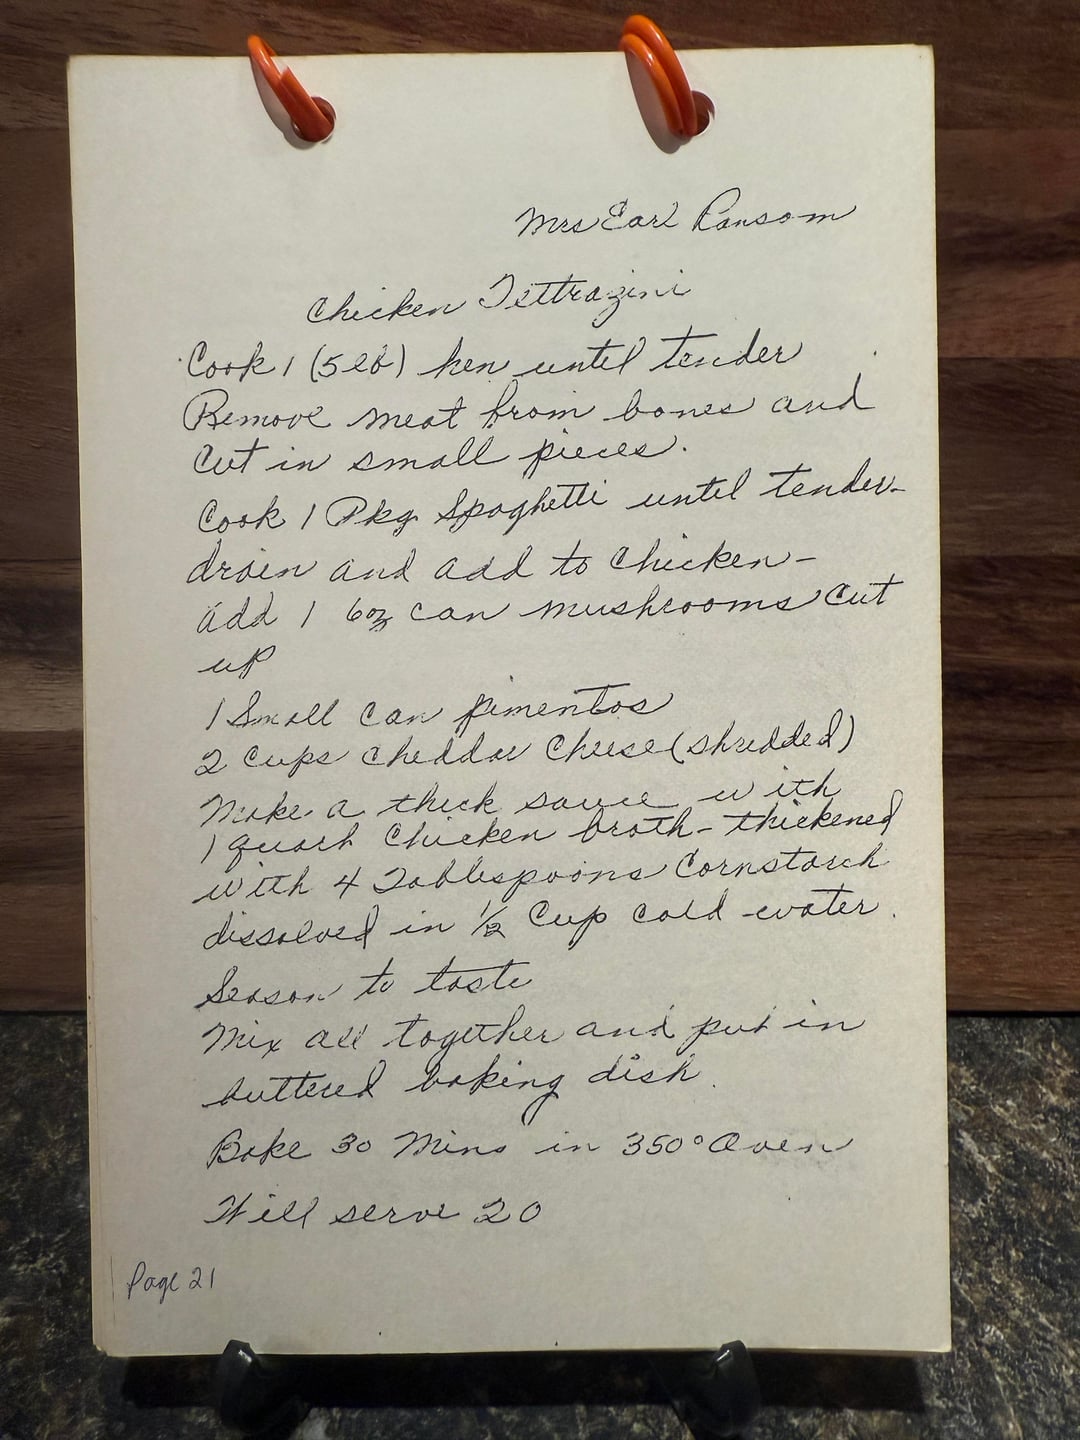 Mrs Earl Ransom
Chicken Tettrazini
Cook 1 (5 lb) hen until tender
Remove meat from bones and
cut in small pieces.
Cook 1 Pkg Spaghetti until tender-
drain and add to chicken-
add 1 6oz can mushrooms cut
up
1 Small can pimentos
2 cups cheddar cheese (shredded)
Make a thick sauce with
1 quart chicken broth - thickened
with 4 Tablespoons Cornstarch
dissolved in 1/2 cup cold water.
Season to taste
Mix all together and put in
buttered baking dish.
Bake 30 Mins in 350° Oven
Will serve 20
Page 21